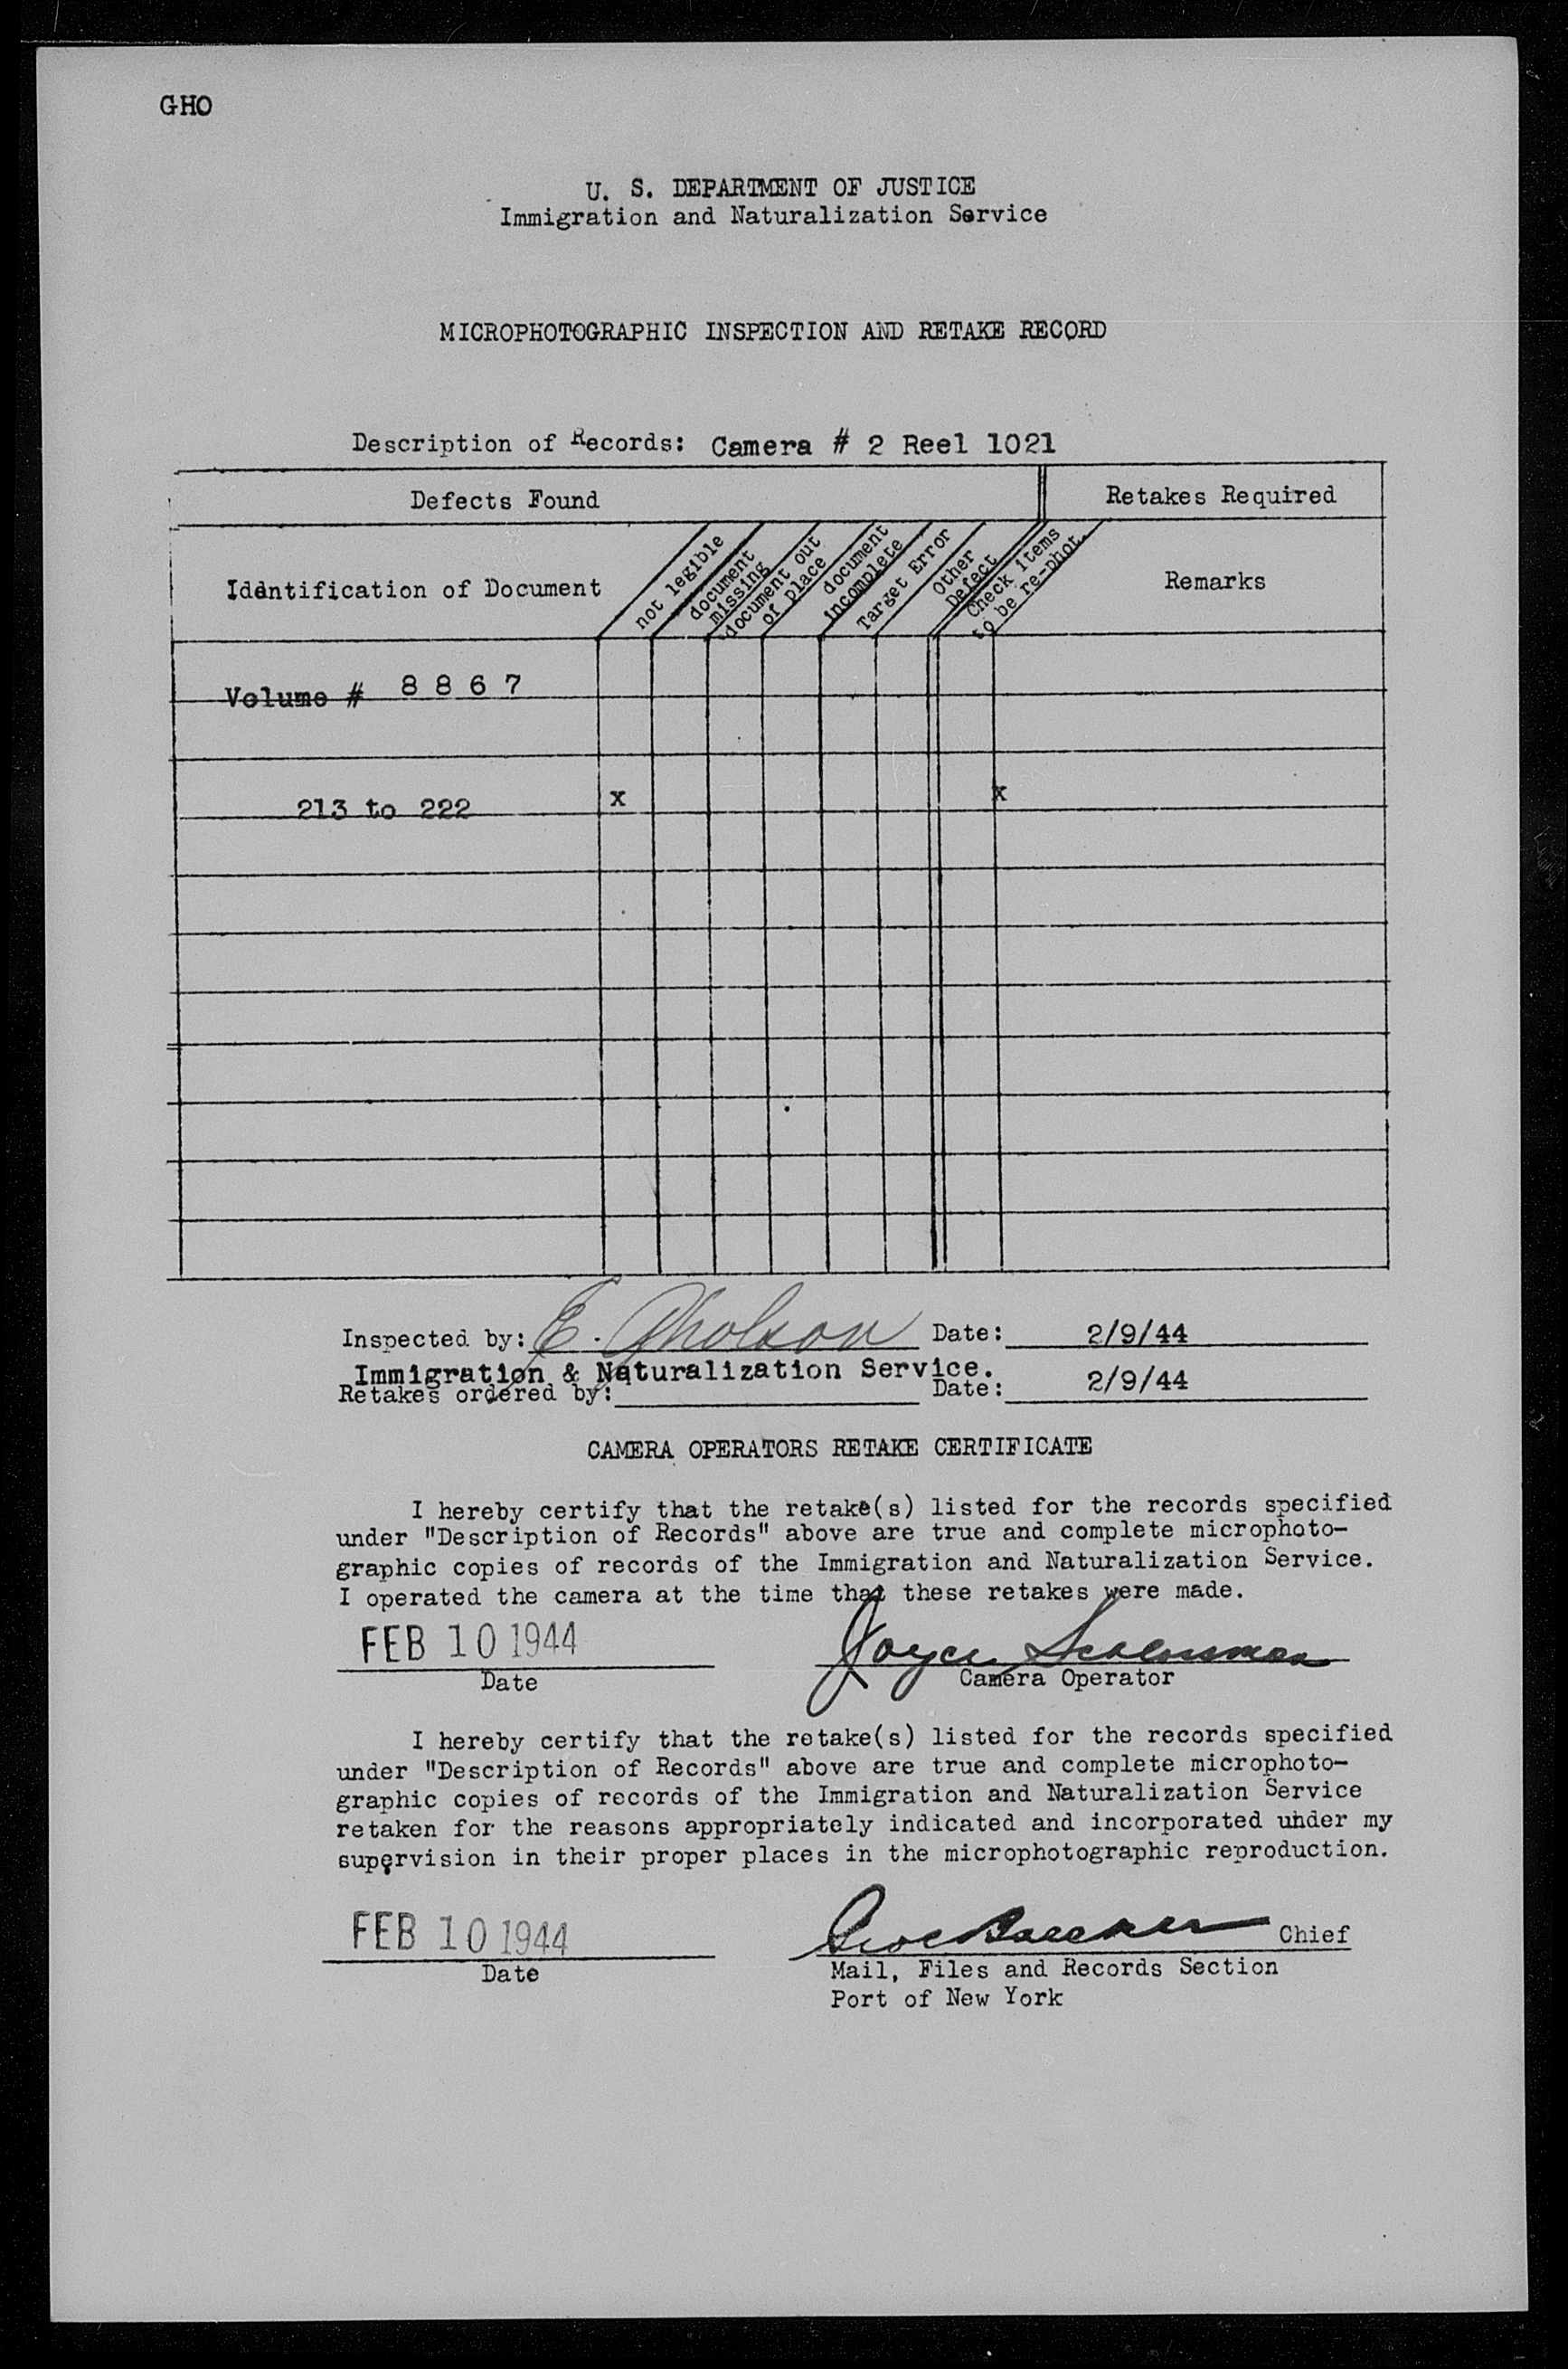 GHO
U. S. DEPARTMENT OF JUSTICE
Immigration and Naturalization Service
MICROPHOTOGRAPHIC INSPECTION AND RETAKE RECORD
Description of Records: Camera # 2 Reel 1021
Defects Found
Retakes Required
Identification of Document
not legible
document missing
document out of place
document incomplete
Target Error
Other Defect
Check items to be re-phot.
Remarks
Volume # 8 8 6 7
213 to 222 x x
Inspected by: E. Gholson Date: 2/9/44
Immigration & Naturalization Service.
Retakes ordered by: Date: 2/9/44
CAMERA OPERATORS RETAKE CERTIFICATE
I hereby certify that the retake(s) listed for the records specified
under "Description of Records" above are true and complete microphoto-
graphic copies of records of the Immigration and Naturalization Service.
I operated the camera at the time that these retakes were made.
FEB 10 1944 Joyce
Date Camera Operator
I hereby certify that the retake(s) listed for the records specified
under "Description of Records" above are true and complete microphoto-
graphic copies of records of the Immigration and Naturalization Service
retaken for the reasons appropriately indicated and incorporated under my
supervision in their proper places in the microphotographic reproduction.
FEB 10 1944 Chief
Date Mail, Files and Records Section
Port of New York